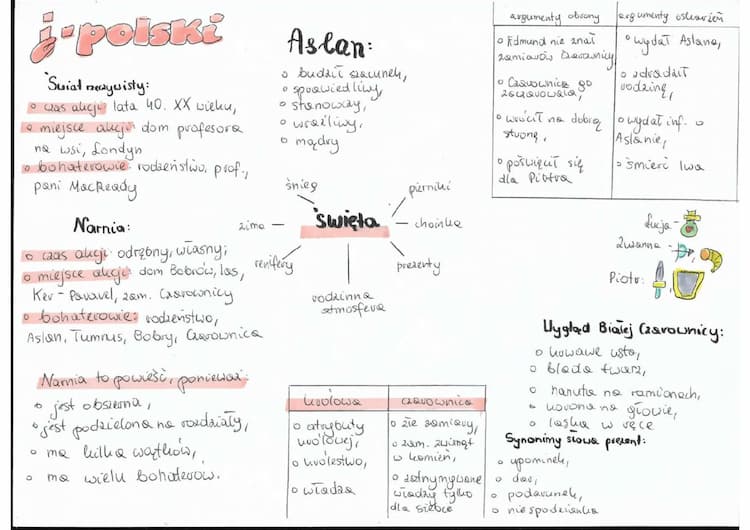 j-polski
Świat rzeczywisty:
o czas akcji: lata 40. XX wieku,
o miejsce akcji: dom profesora
na wsi, Londyn
o bohaterowie: rodzeństwo, prof.,
pani MacReady
Narnia:
o czas akcji: odrębny, własny;
o miejsce akcji: dom Bobrów, las,
Ker-Paravel, zam. Czarownicy
o bohaterowie: rodzeństwo,
Aslan, Tumnus, Bobry, Czarownica
Narnia to powieść, ponieważ:
o jest obszerna,
o jest podzielona na rozdziały,
o ma kilka wątków,
o ma wielu bohaterów.
Aslan:
o budził szacunek,
o sprawiedliwy,
o stanowczy,
o wrażliwy,
o mądry
śnieg
pierniki
zima
święta
choinka
renifery
prezenty
rodzinna
atmosfera
królowa
o atrybuty
królowej,
o królestwo,
o władza
czarownica
o złe zamiary,
o zam. zwierząt
w kamień,
o zatrzymywanie
władzy tylko
dla siebie
argumenty obrony
o Edmund nie znał
zamiarów Czarownicy,
o Czarownica go
zaczarowała,
o wrócił na dobrą
stronę,
o poświęcił się
dla Piotra
argumenty oskarżeń
o wydał Aslana,
o zdradził
rodzinę,
o wydał inf. o
Aslanie,
o śmierć lwa
Łucja-
Zuzanna-
Piotr:
Wygląd Białej Czarownicy:
o krwawe usta,
o blada twarz,
o narzuta na ramionach,
o korona na głowie,
o laska w ręce
Synonimy słowa prezent:
o upominek,
o dar,
o podarunek,
o niespodzianka